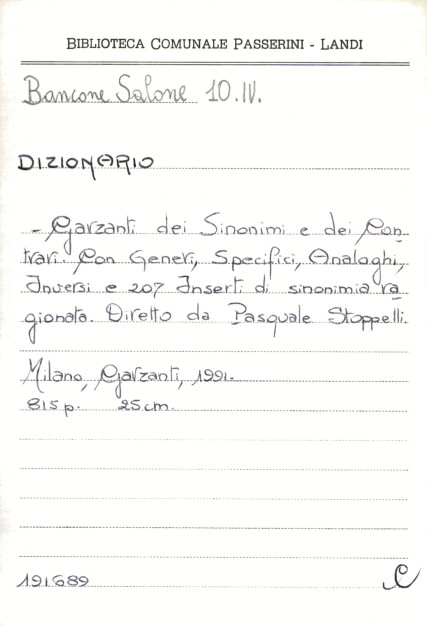 BIBLIOTECA COMUNALE PASSERINI - LANDI
Bancone Salone 10.IV.
DIZIONARIO
- Garzanti dei Sinonimi e dei Con-
trari. Con Generi, Specifici, Analoghi,
Inversi e 207 Inserti di sinonimia ra-
gionata. Diretto da Pasquale Stoppelli.
Milano, Garzanti, 1991.
815 p. 25 cm.
191689
C